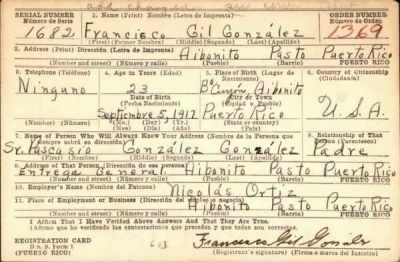 SERIAL NUMBER 1. Name (Print) Nombre (Letra de Imprenta) ORDER NUMBER
Número de Serie Número de Orden
1682 Francisco Gil González 1369
(First) (Primer Nombre) (Middle) (Segundo) (Last) (Apellido)
2. Address (Print) Dirección (Letra de Imprenta)
Aibonito Pasto Puerto Rico
(Number and street) (Número y calle) (Town) (Pueblo) PUERTO RICO
3. Telephone (Teléfono) 4. Age in Years (Edad) 5. Place of Birth (Lugar de Nacimiento) 6. Country of Citizenship
(Ciudadanía)
Ninguno 23 Bo Aibonito
Date of Birth Town or County
(Fecha Nacimiento) (Ciudad o Pueblo)
Septiembre 5, 1917 Puerto Rico U.S.A.
(Mo.) (Mes) (Day) (Día) (Yr.) (Año) (State or country) (Estado o país)
7. Name of Person Who Will Always Know Your Address (Nombre de la Persona que 8. Relationship of That
Siempre sabrá su dirección) Person (Parentesco)
Sr. González González Padre
(First) (Primer Nombre) (Middle) (Segundo) (Last) (Apellido)
9. Address of That Person (Dirección de esa persona)
Entrega General Aibonito Pasto Puerto Rico
(Number and street) (Número y calle) (Town) (Pueblo) PUERTO RICO
10. Employer's Name (Nombre del Patrono)
Nicolás Ortiz
11. Place of Employment or Business (Dirección del empleo o negocio)
Aibonito Pasto Puerto Rico
(Number and street) (Número y calle) (Town) (Pueblo) PUERTO RICO
I Affirm That I Have Verified Above Answers And That They Are True.
Afirmo que he verificado las contestaciones que preceden y que todas son correctas.
REGISTRATION CARD
D. S. S. Form 1
(PUERTO RICO)
Francisco Gil González
Registrant's signature) (Firma o marca del Inscrito)